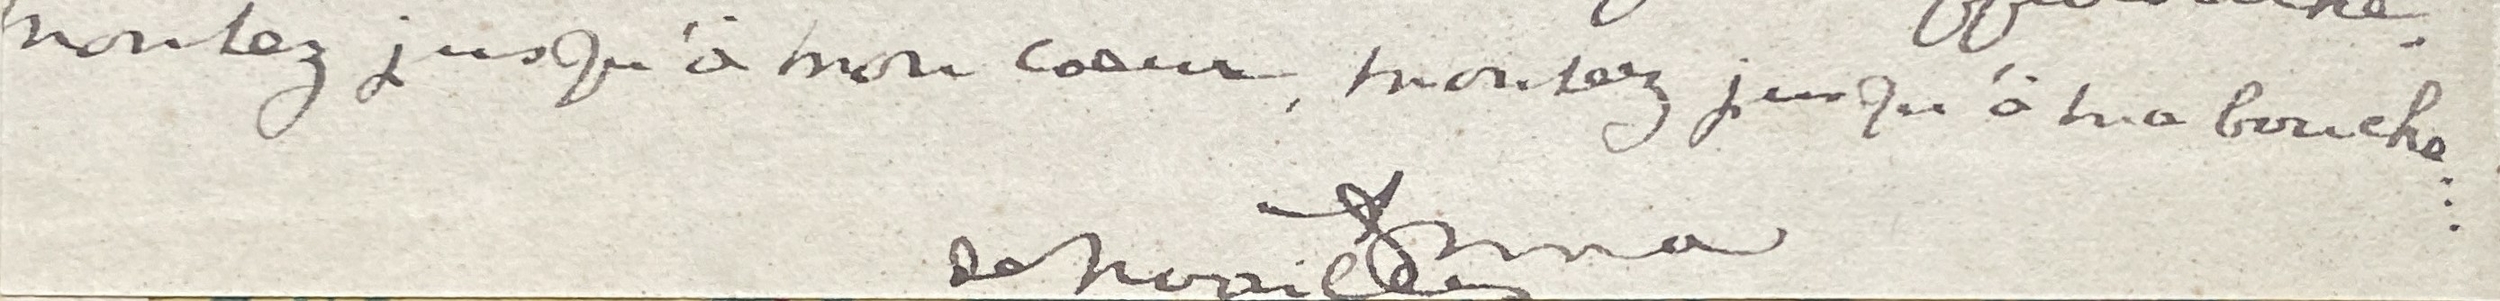 montez jusqu'à mon coeur, montez jusqu'à ma bouche...
Anna
de Noailles